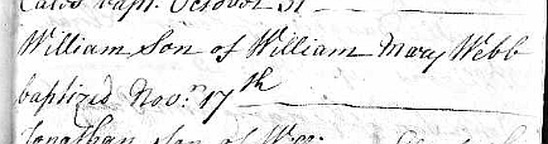 bapt. October 31
William Son of William Mary Webb
baptized Nov.r 17th
Jonathan Son of